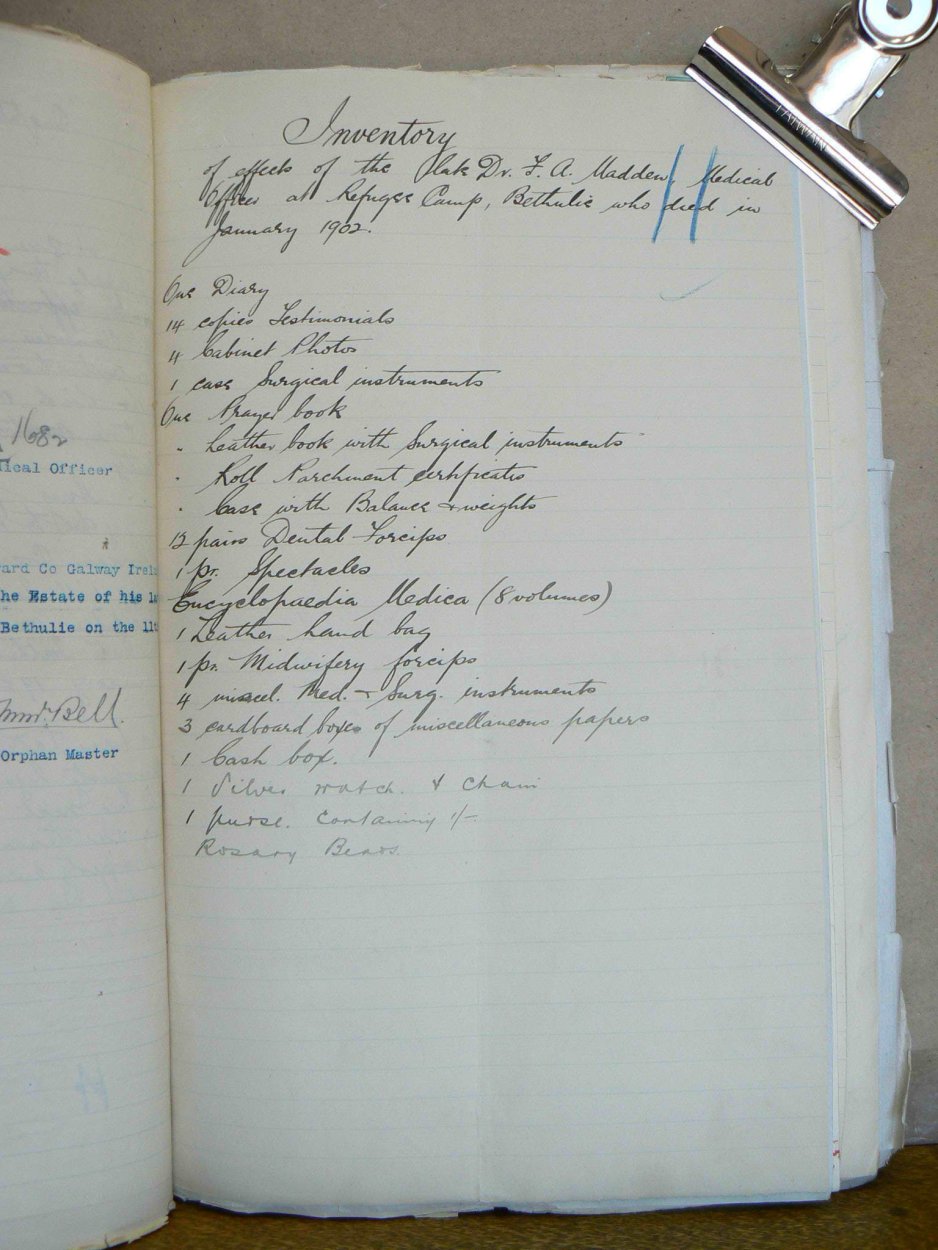 TAIWAN
Inventory
of effects of the late Dr. F. A. Madden, Medical
Officer at Refugee Camp, Bethulie who died in
January 1902.
One Diary
14 copies Testimonials
4 Cabinet Photos
1 case Surgical instruments
One Prayer book
" Leather book with Surgical instruments
" Roll Parchment certificates
" Case with Balance & weights
12 pairs Dental Forceps
1 pr. Spectacles
Encyclopaedia Medica (8 volumes)
1 Leather hand bag
1 pr. Midwifery forceps
4 miscel. Med. & Surg. instruments
3 cardboard boxes of miscellaneous papers
1 Cash box.
1 Silver watch & chain
1 purse. containing 1/-
Rosary Beads
1682
ical Officer
ard Co Galway Irel
he Estate of his l
Bethulie on the 11t
Bell.
Orphan Master